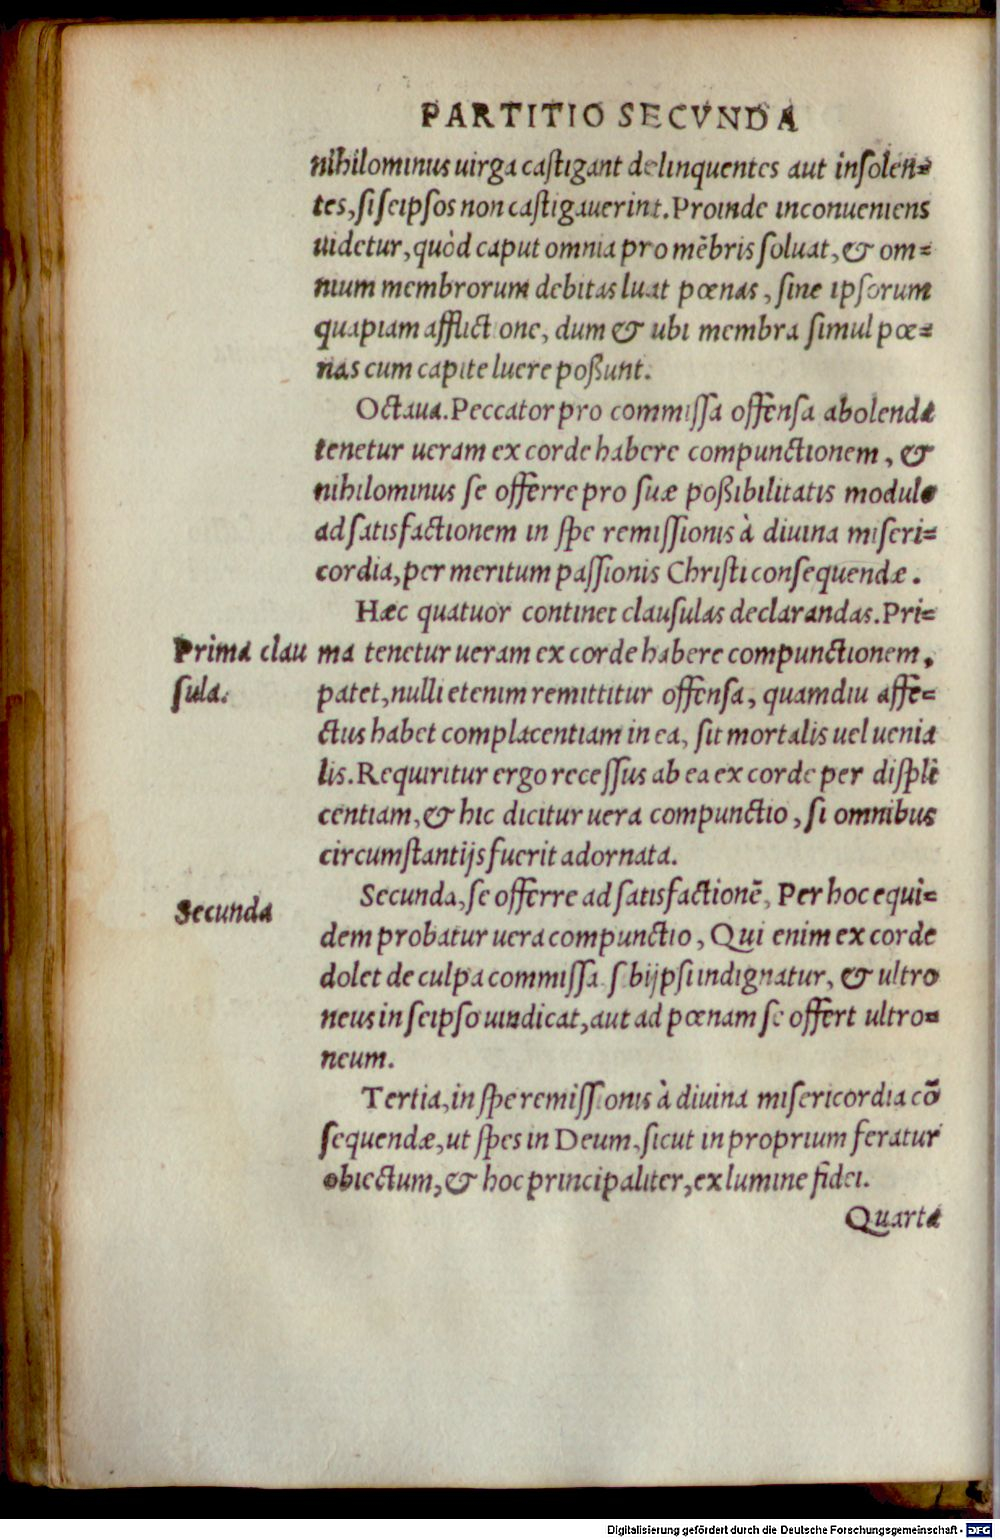 PARTITIO SECVNDA
nihilominus uirga castigant delinquentes aut insolen=
tes, si seipsos non castigauerint. Proinde inconueniens
uidetur, quòd caput omnia pro mẽbris soluat, & om=
nium membrorum debitas luat pœnas, sine ipsorum
quapiam afflict one, dum & ubi membra simul pœ=
nas cum capite luere poßunt.
Octaua. Peccator pro commissa offensa abolenda
tenetur ueram ex corde habere compunctionem, &
nihilominus se offerre pro suæ poßibilitatis modulo
ad satisfactionem in spe remissionis à diuina miseri=
cordia, per meritum passionis Christi consequendæ.
Hæc quatuor continet clausulas declarandas. Pri=
Prima clau
sula.
ma tenetur ueram ex corde habere compunctionem,
patet, nulli etenim remittitur offensa, quamdiu affe=
ctus habet complacentiam in ea, sit mortalis uel uenia
lis. Requiritur ergo recessus ab ea ex corde per displi
centiam, & hic dicitur uera compunctio, si omnibus
circumstantijs fuerit adornata.
Secunda
Secunda, se offerre ad satisfactionẽ, Per hoc equi=
dem probatur uera compunctio, Qui enim ex corde
dolet de culpa commissa s bijpsi indignatur, & ultro
neus in seipso uindicat, aut ad pœnam se offert ultro=
neum.
Tertia, in spe remissionis à diuina misericordia cõ
sequendæ, ut spes in Deum, sicut in proprium feratur
obiectum, & hoc principaliter, ex lumine fidei.
Quarta
Digitalisierung gefördert durch die Deutsche Forschungsgemeinschaft - DFG